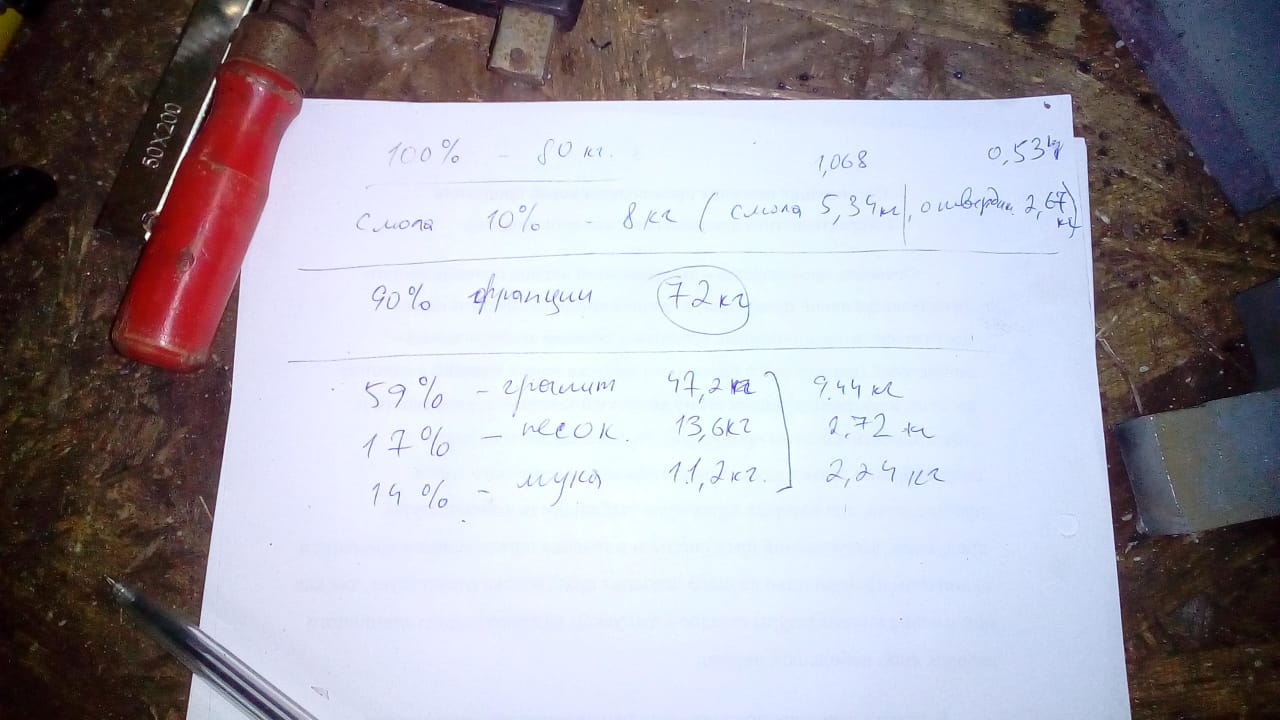 50X200
100% - 80 кг. 1,068 0,53 kg
смола 10% - 8 кг ( смола 5,34 кг, отвердит. 2,67 кг)
90% фракции 72 кг
59% - гранит 47,2 кг 9.44 кг
17% - песок. 13,6 кг 2,72 кг
14% - мука 11,2 кг. 2,24 кг